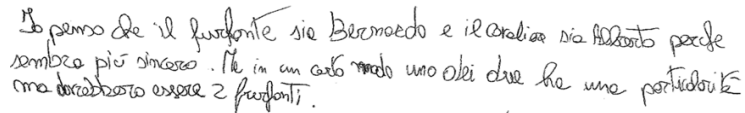 Io penso che il furfante sia Bernardo e il cavaliere sia Alberto perche
sembra più sincero. Ma in un certo modo uno dei due ha una particolarità
ma dovrebbero essere 2 furfanti.